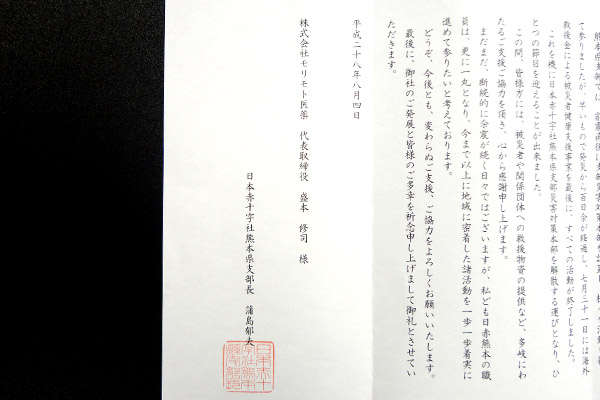 て参りましたが、早いもので発災から百日余が経過し、七月三十一日には海外
救援金による被災者健康支援事業を最後に、すべての活動が終了しました。
これを機に日本赤十字社熊本県支部災害対策本部を解散する運びとなり、ひ
とつの節目を迎えることが出来ました。
この間、皆様方には、被災者や関係団体への救援物資の提供など、多岐にわ
たるご支援ご協力を頂き、心から感謝申し上げます。
まだまだ、断続的に余震が続く日々ではございますが、私ども日赤熊本の職
員は、更に一丸となり、今まで以上に地域に密着した諸活動を一歩一歩着実に
進めて参りたいと考えております。
どうぞ、今後とも、変わらぬご支援、ご協力をよろしくお願いいたします。
最後に、御社のご発展と皆様のご多幸を祈念申し上げまして御礼とさせてい
ただきます。
平成二十八年八月四日
株式会社モリモト医薬 代表取締役 盛本 修司 様
日本赤十字社熊本県支部長 蒲島郁夫